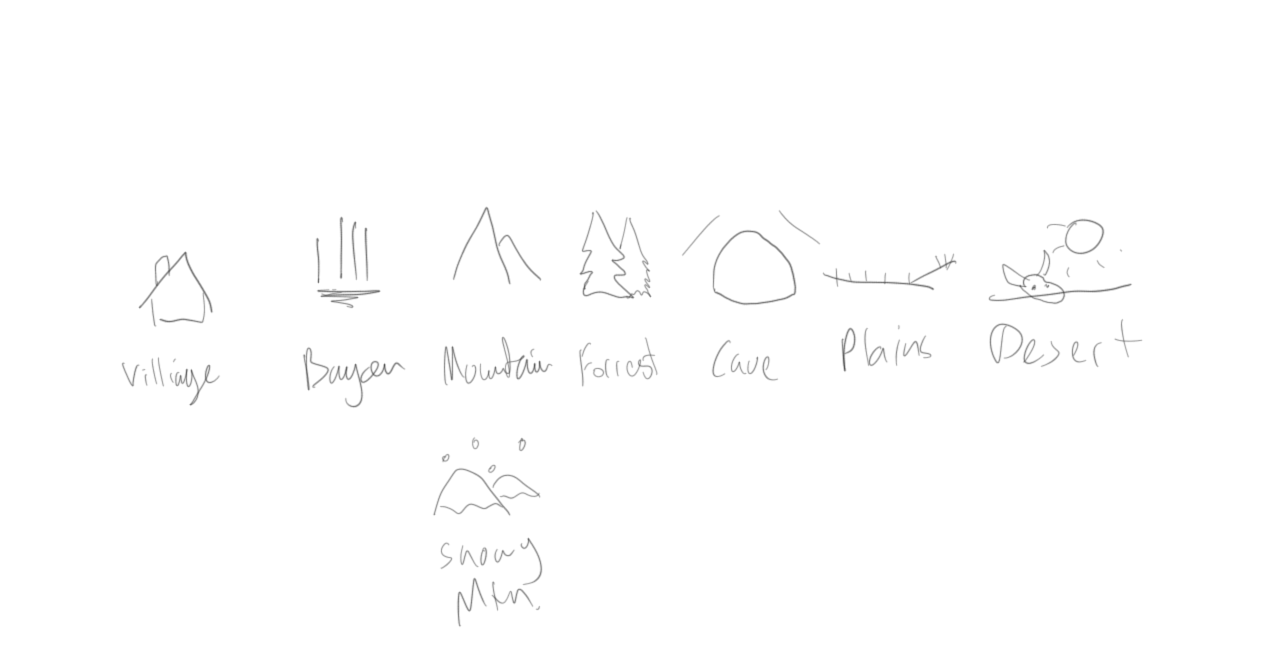 Villiage
Bayoen
Mountain
Forrest
Cave
Plains
Desert
Snowy
Mtn.